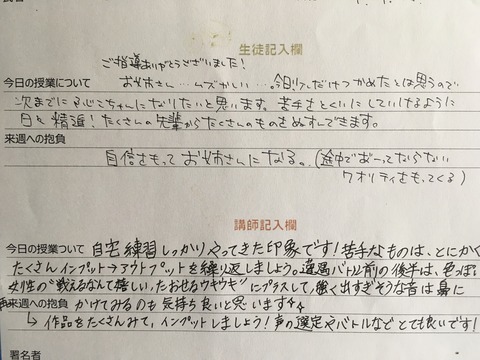 生徒記入欄
ご指導ありがとうございました!
今日の授業について お姉さん…ムズかしい…。今日1つだけつかめたとは思うので
次までに るじとちゃんになりたいと思います。苦手をとくいにしていけるように
日々精進!たくさんの先輩からたくさんのものをぬすんできます。
来週への抱負
自信をもってお姉さんになる。(途中でおってならない
クオリティをもってくる)
講師記入欄
今日の授業ついて 自宅練習しっかりやってきた印象です!苦手なものは、とにかく
たくさんインプット→アウトプットを繰り返しましょう。遭遇バトル前の後半は、色っぽい
女性の"戦えるなんて嬉しい、たおせるウキウキ"にプラスして、強く出すぎそうな音は鼻に
来週への抱負 かけてみるのも気持ち良いと思います
↳作品をたくさんみて、インプットしましょう!声の選定やバトルなどとても良いです!
署名者